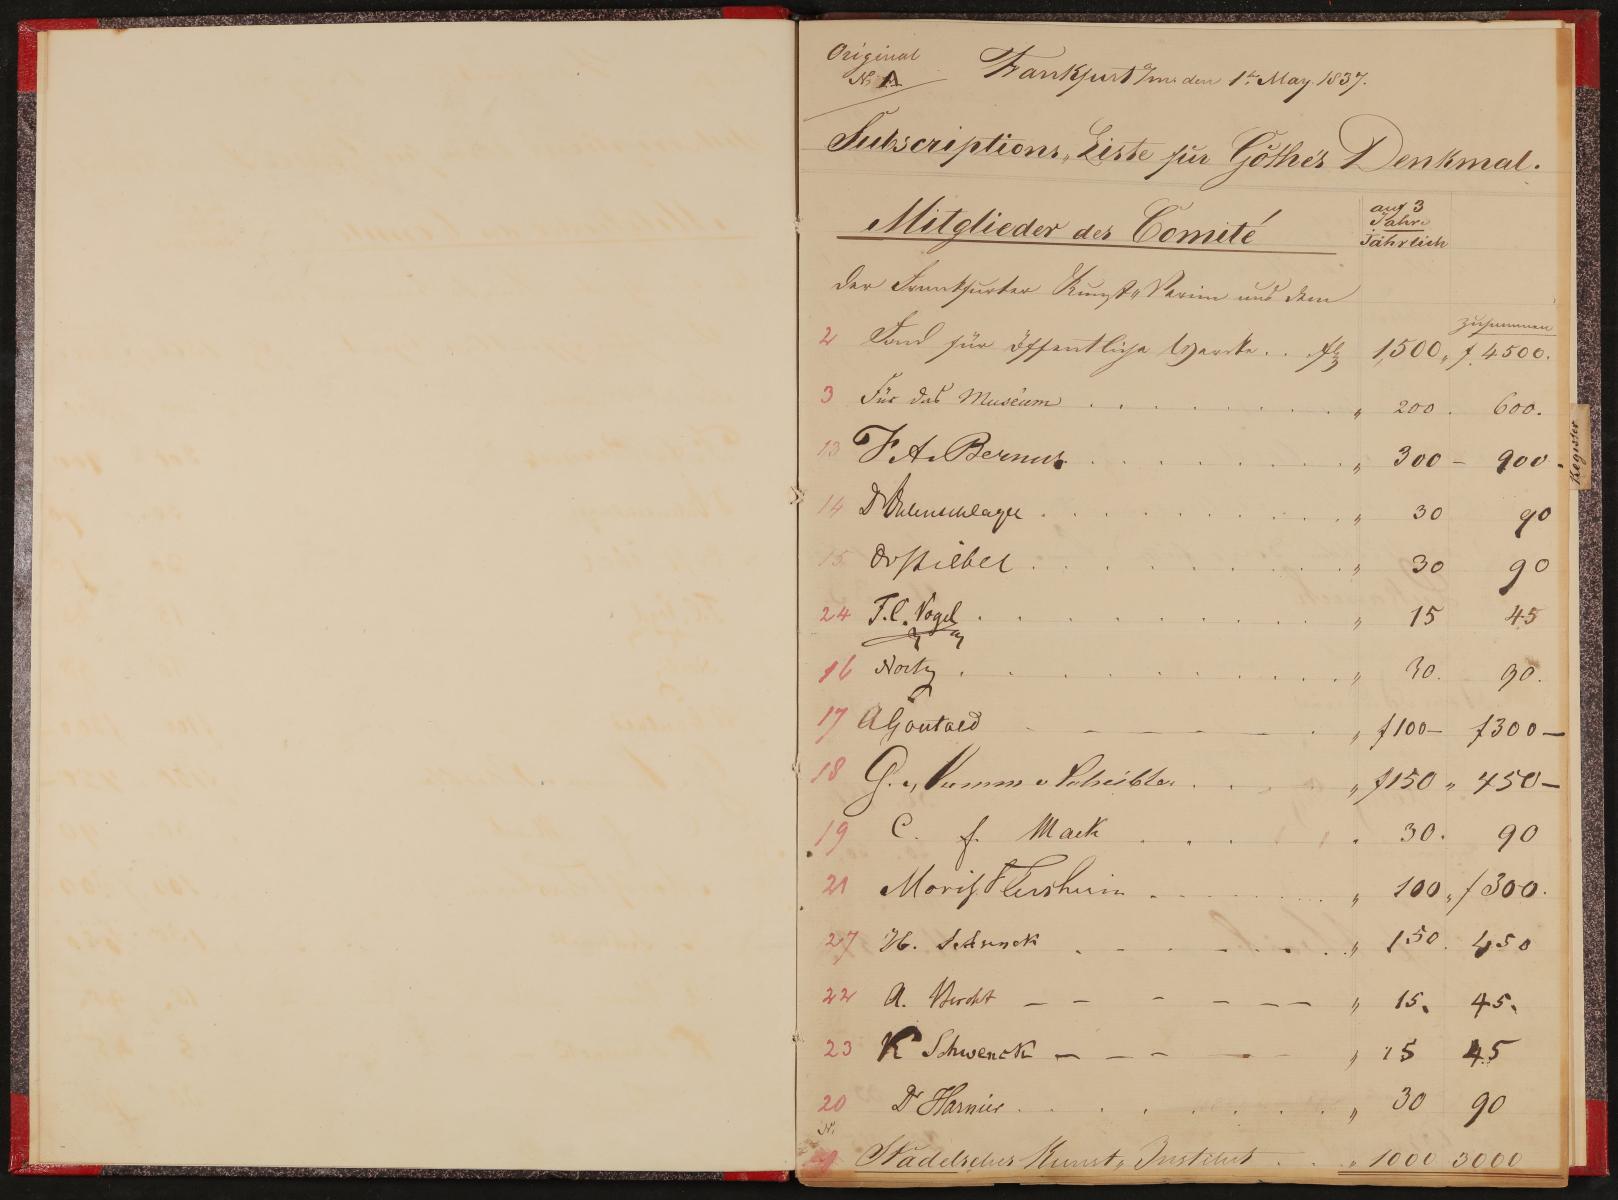 Original
No A
Frankfurt a/m den 1ten May 1837.
Subscriptions„Liste für Göthe's Denkmal.
Mitglieder des Comité
auf 3
Jahre
Jährlich
Der Frankfurter Kunst„Verein und dem
zusammen
2 Fond für öffentliche Werke . . . 1,500 „ f. 4500.
3 Für das Museum . . . „ 200 . 600.
13 F. A. Bernus . . . „ 300 – 900 –
14 Dr Ohlenschlager . . . „ 30 90
15 Dr Stiebel . . . „ 30 90
24 F. C. Vogel . . . „ 15 45
16 . . . „ 30. 90.
17 A Gontard – – – „ f 100 – f 300 –
18 G. v. Mumm v Scheibler . . . „ f 150 „ 450 –
19 C. f. Mack . . . 30. 90
21 Moritz Flersheim . . . „ 100 „ f 300.
27 . . . „ 150. 450
22 A. – – – „ 15. 45.
23 K Schwenck – – – „ 15 45
20 Dr Harnier . . . „ 30 90
No
9 Städelsches Kunst„Institut . . . „ 1000 3000
Register